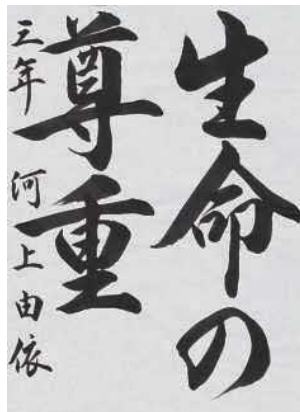 生命の
尊重
三年 河上由依